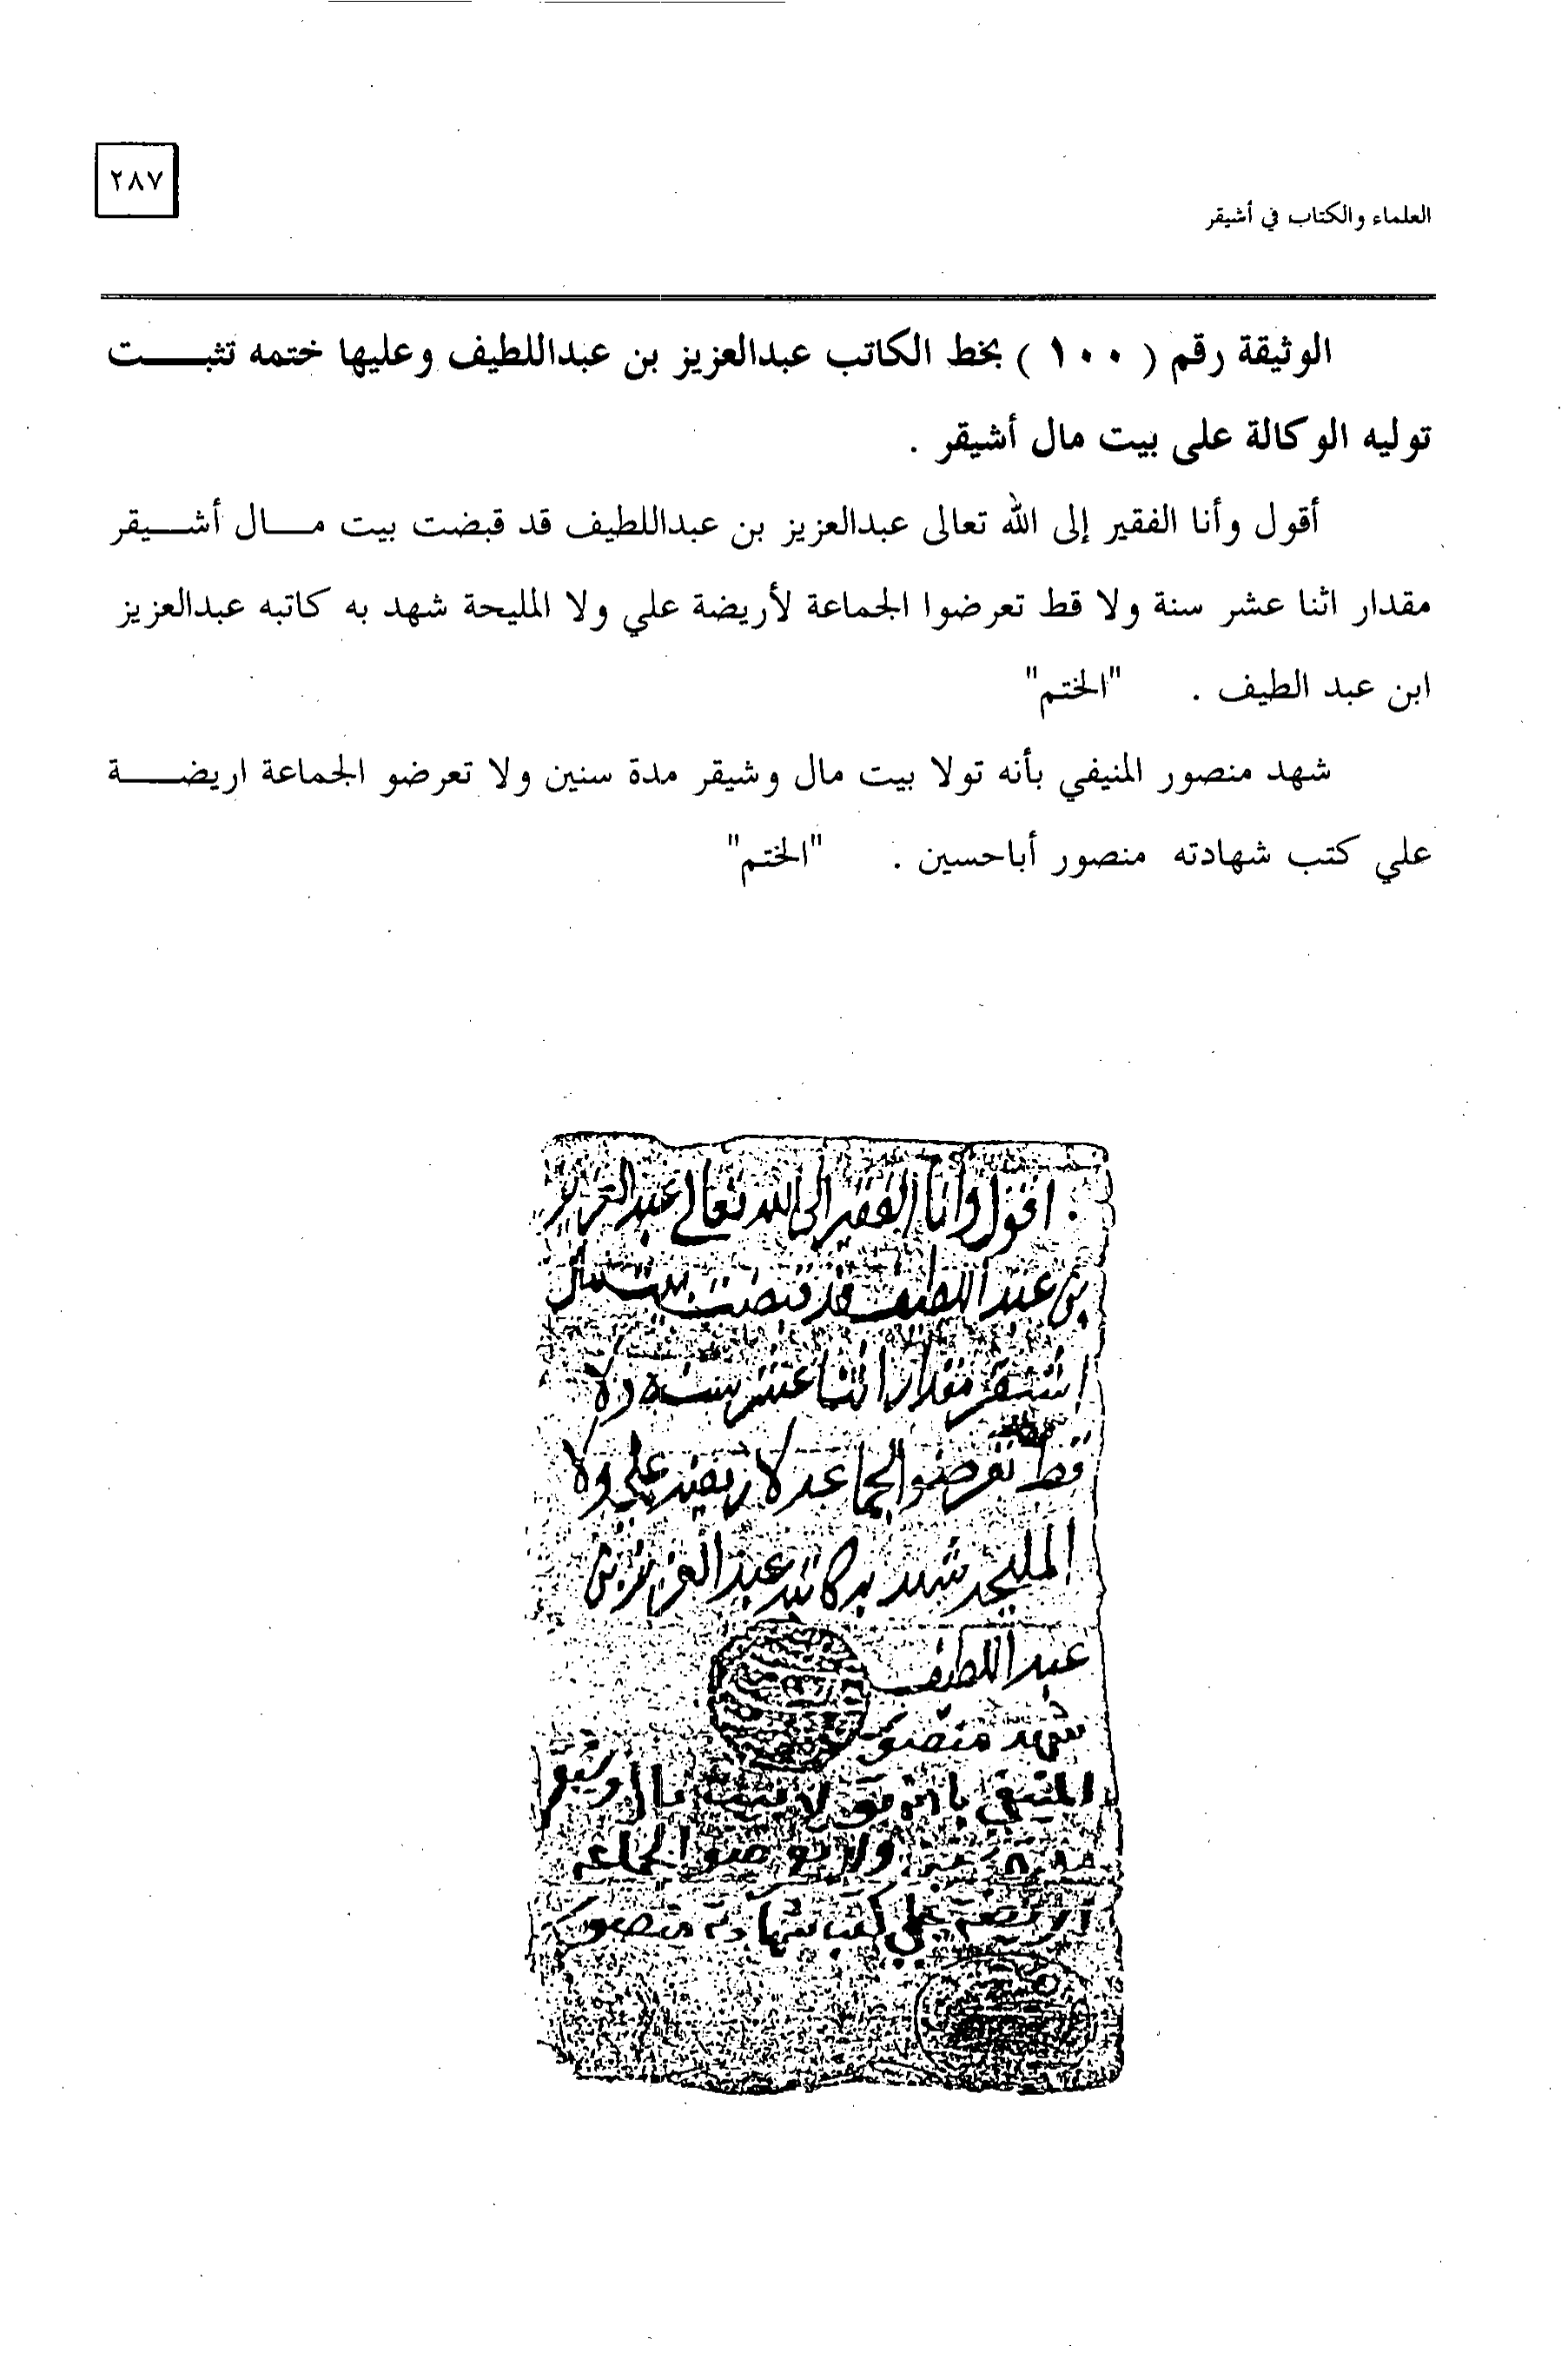 ٢٨٧
العلماء والكتاب في أشيقر
الوثيقة رقم ( ١٠٠ ) بخط الكاتب عبدالعزيز بن عبداللطيف وعليها ختمه تثبت
توليه الوكالة على بيت مال أشيقر .
أقول وأنا الفقير إلى الله تعالى عبدالعزيز بن عبداللطيف قد قبضت بيت مال أشيقر
مقدار اثنا عشر سنة ولا قط تعرضوا الجماعة لأريضة علي ولا المليحة شهد به كاتبه عبدالعزيز
ابن عبد الطيف . "الختم"
شهد منصور المنيفي بأنه تولا بيت مال وشيقر مدة سنين ولا تعرضو الجماعة اريضة
علي كتب شهادته منصور أباحسين . "الختم"
اقول وانا الفقير الى الله تعالى عبد العزيز
بن عبد اللطيف قد قبضت بيت مال
اشيقر مقدار اثنا عشر سنه ولا
قط تعرضوا الجماعه لاريضه علي ولا
المليحه شهد به كاتبه عبد العزيز بن
عبد اللطيف
شهد منصور
المنيفي بانه تولا بيت مال وشيقر
مدة سنين ولا تعرضو الجماعه
اريضه علي كتب شهادته منصور